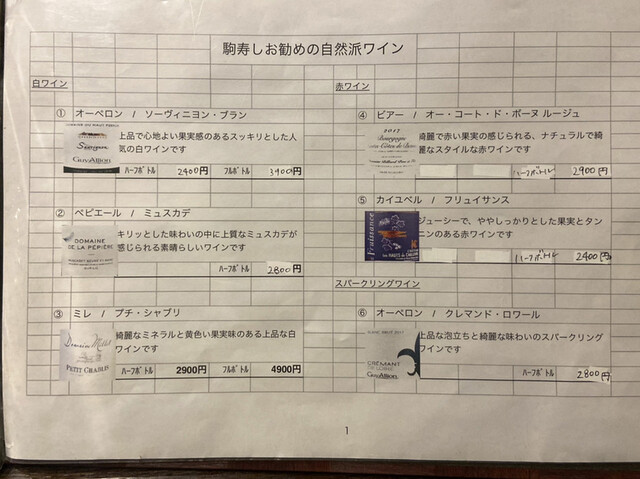 駒寿しお勧めの自然派ワイン
白ワイン
① オーペロン / ソーヴィニヨン・ブラン
上品で心地よい果実感のあるスッキリとした人
気の白ワインです
Guy Allion
ハーフボトル 2400円 フルボトル 3900円
② ペピエール / ミュスカデ
DOMAINE
DE LA PÉPIÈRE
キリッとした味わいの中に上質なミュスカデが
感じられる素晴らしいワインです
ハーフボトル 2800円
③ ミレ / プチ・シャブリ
綺麗なミネラルと黄色い果実味のある上品な白
ワインです
PETIT CHABLIS
ハーフボトル 2900円 フルボトル 4900円
赤ワイン
④ ビアー / オー・コート・ド・ボーヌ ルージュ
2017
Bourgogne
綺麗で赤い果実の感じられる、ナチュラルで綺
麗なスタイルな赤ワインです
ハーフボトル 2900円
⑤ カイユベル / フリュイサンス
Fruissance
ジューシーで、ややしっかりとした果実とタン
ニンのある赤ワインです
ハーフボトル 2400円
スパークリングワイン
⑥ オーペロン / クレマンド・ロワール
上品な泡立ちと綺麗な味わいのスパークリング
ワインです
CRÉMANT
DE LOIRE
Guy Allion
ハーフボトル 2800円
1